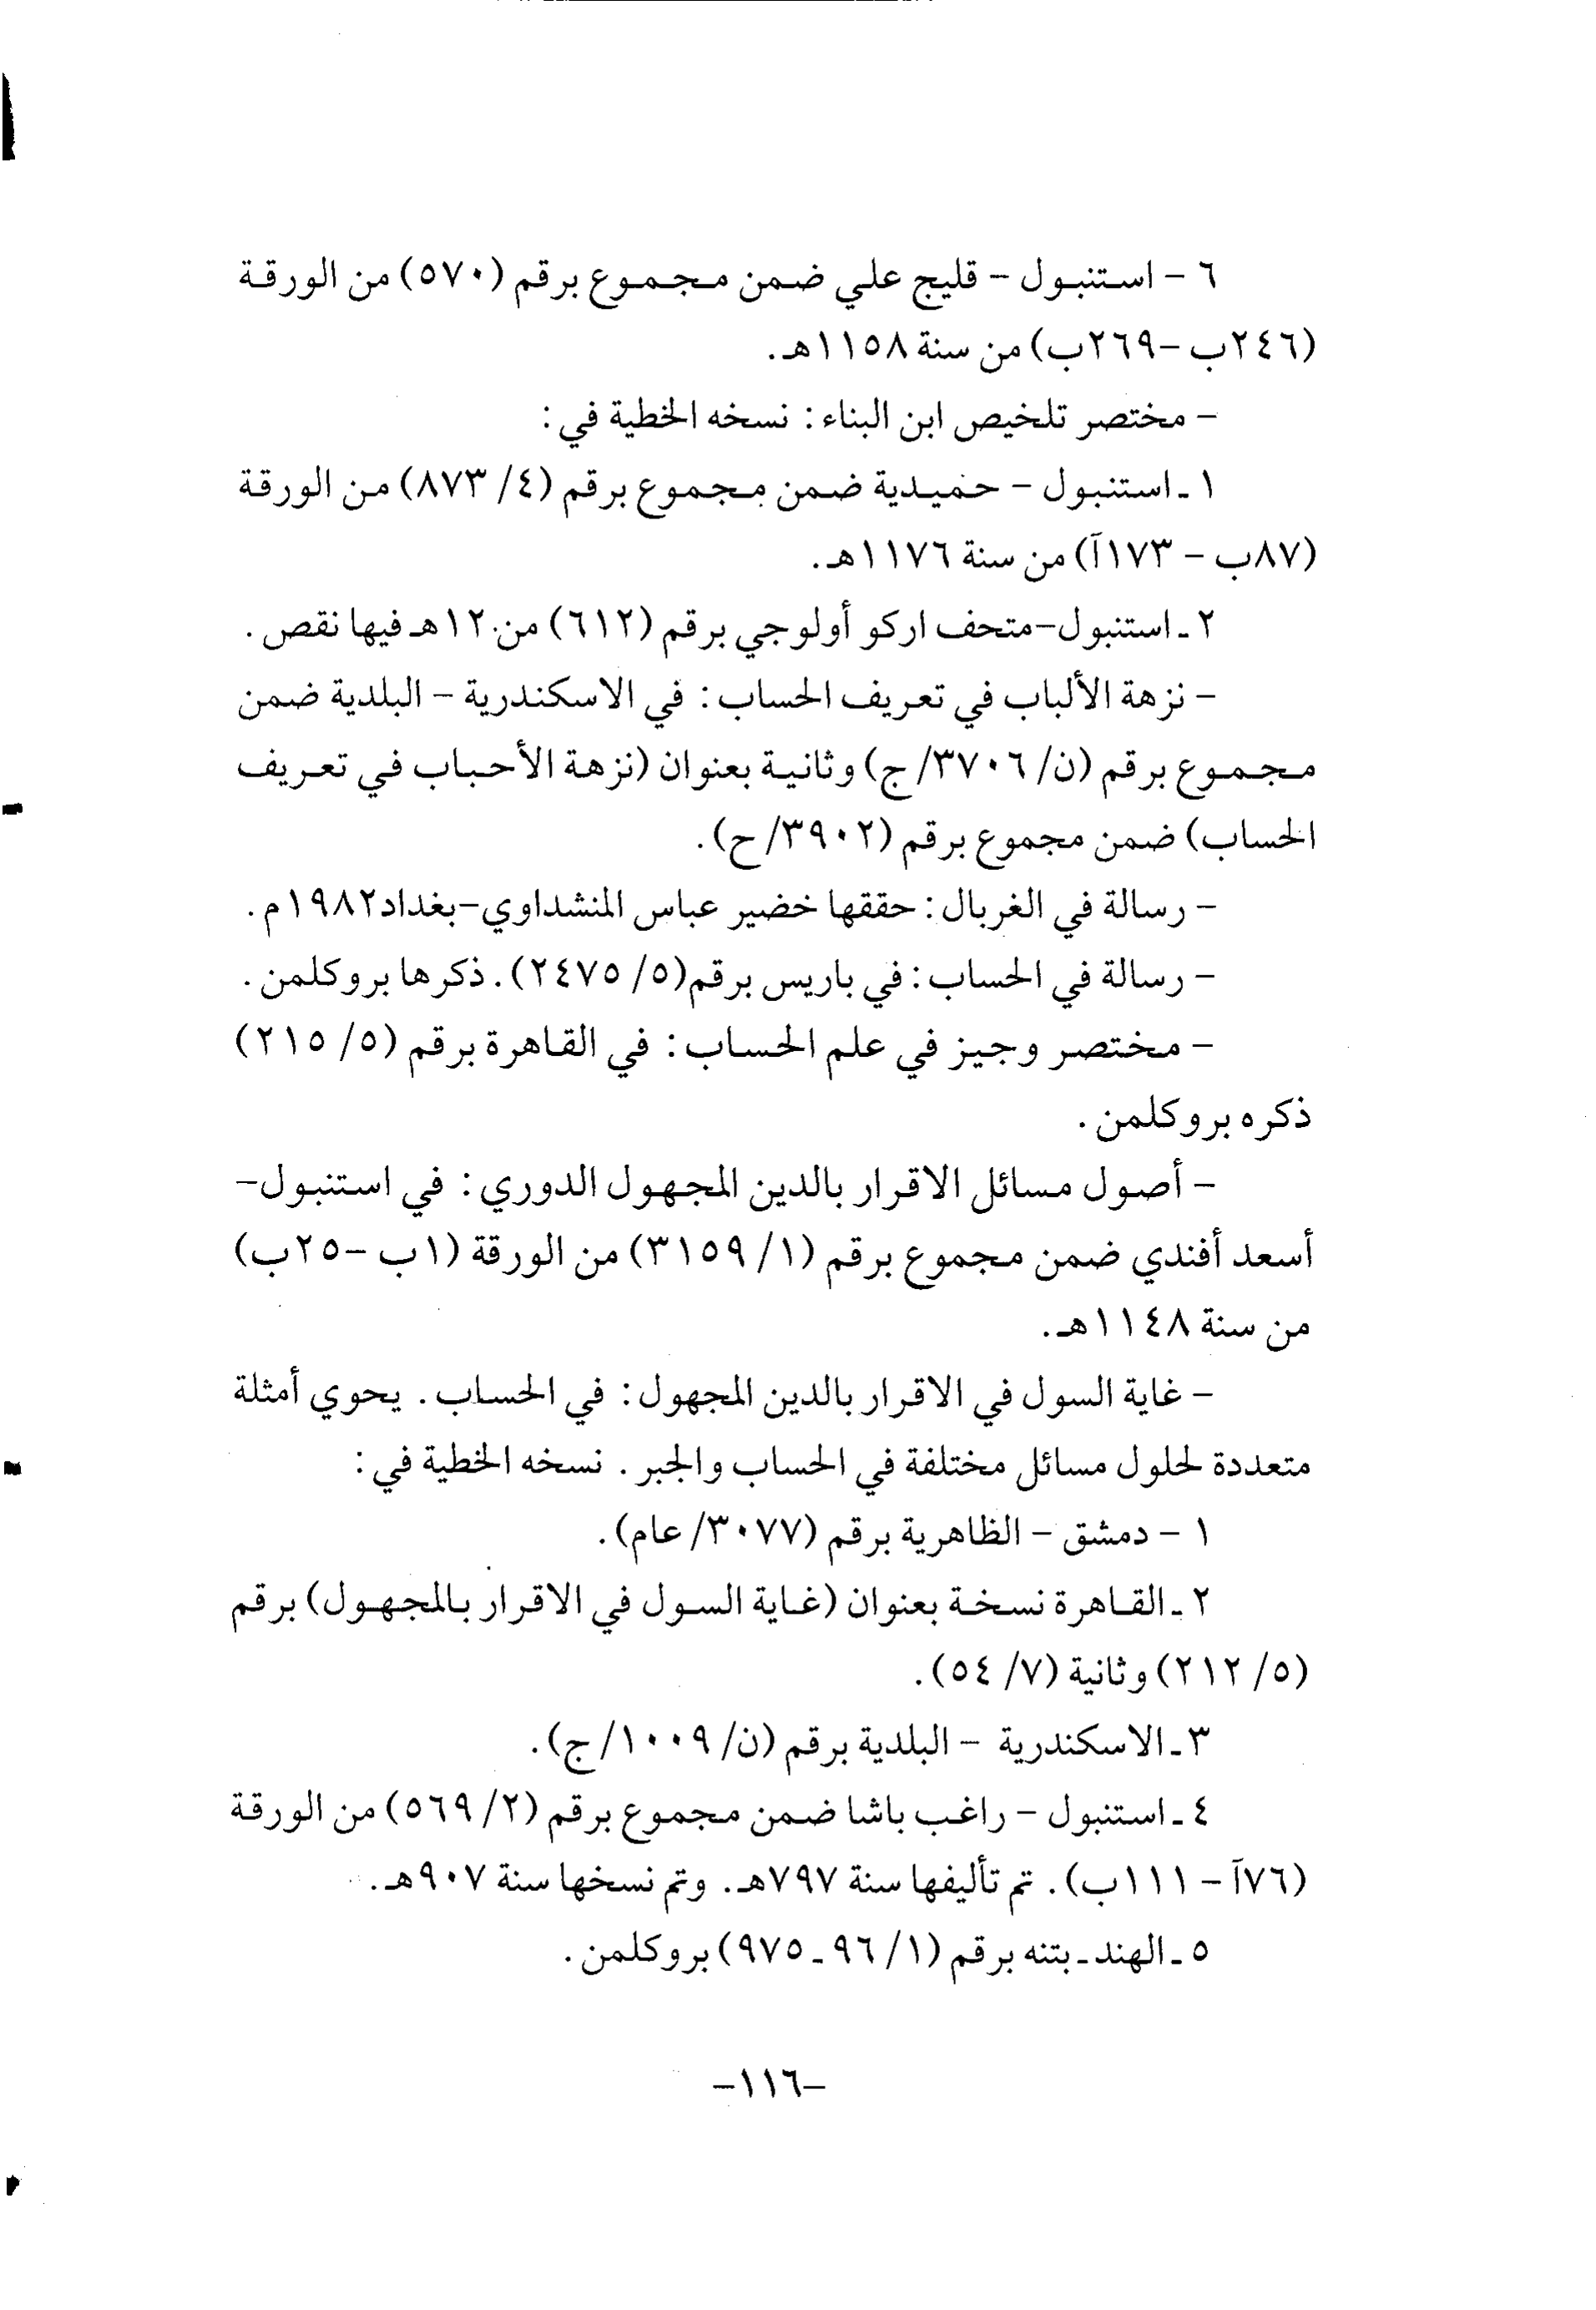 ٦ - استنبول - قليج علي ضمن مجموع برقم (٥٧٠) من الورقة
(٢٤٦ب -٢٦٩ب) من سنة ١١٥٨هـ.
- مختصر تلخيص ابن البناء: نسخه الخطية في:
١ ـ استنبول - حميدية ضمن مجموع برقم (٤/ ٨٧٣) من الورقة
(٨٧ب - ١٧٣آ) من سنة ١١٧٦هـ.
٢ ـ استنبول-متحف اركو أولوجي برقم (٦١٢) من ١٢هـ فيها نقص.
- نزهة الألباب في تعريف الحساب: في الاسكندرية - البلدية ضمن
مجموع برقم (ن/ ٣٧٠٦/ ج) وثانية بعنوان (نزهة الأحباب في تعريف
الحساب) ضمن مجموع برقم (٣٩٠٢/ ح).
- رسالة في الغربال: حققها خضير عباس المنشداوي-بغداد١٩٨٢م.
- رسالة في الحساب: في باريس برقم(٥/ ٢٤٧٥). ذكرها بروكلمن.
- مختصر وجيز في علم الحساب: في القاهرة برقم (٥/ ٢١٥)
ذكره بروكلمن.
- أصول مسائل الاقرار بالدين المجهول الدوري: في استنبول-
أسعد أفندي ضمن مجموع برقم (١/ ٣١٥٩) من الورقة (١ب -٢٥ب)
من سنة ١١٤٨هـ.
- غاية السول في الاقرار بالدين المجهول: في الحساب. يحوي أمثلة
متعددة لحلول مسائل مختلفة في الحساب والجبر. نسخه الخطية في:
١ - دمشق - الظاهرية برقم (٣٠٧٧/ عام).
٢ ـ القاهرة نسخة بعنوان (غاية السول في الاقرار بالمجهول) برقم
(٥/ ٢١٢) وثانية (٧/ ٥٤).
٣ ـ الاسكندرية - البلدية برقم (ن/ ١٠٠٩/ ج).
٤ ـ استنبول - راغب باشا ضمن مجموع برقم (٢/ ٥٦٩) من الورقة
(٧٦آ - ١١١ب). تم تأليفها سنة ٧٩٧هـ. وتم نسخها سنة ٩٠٧هـ.
٥ ـ الهند ـ بتنه برقم (١/ ٩٦ ـ ٩٧٥) بروكلمن.
-١١٦-